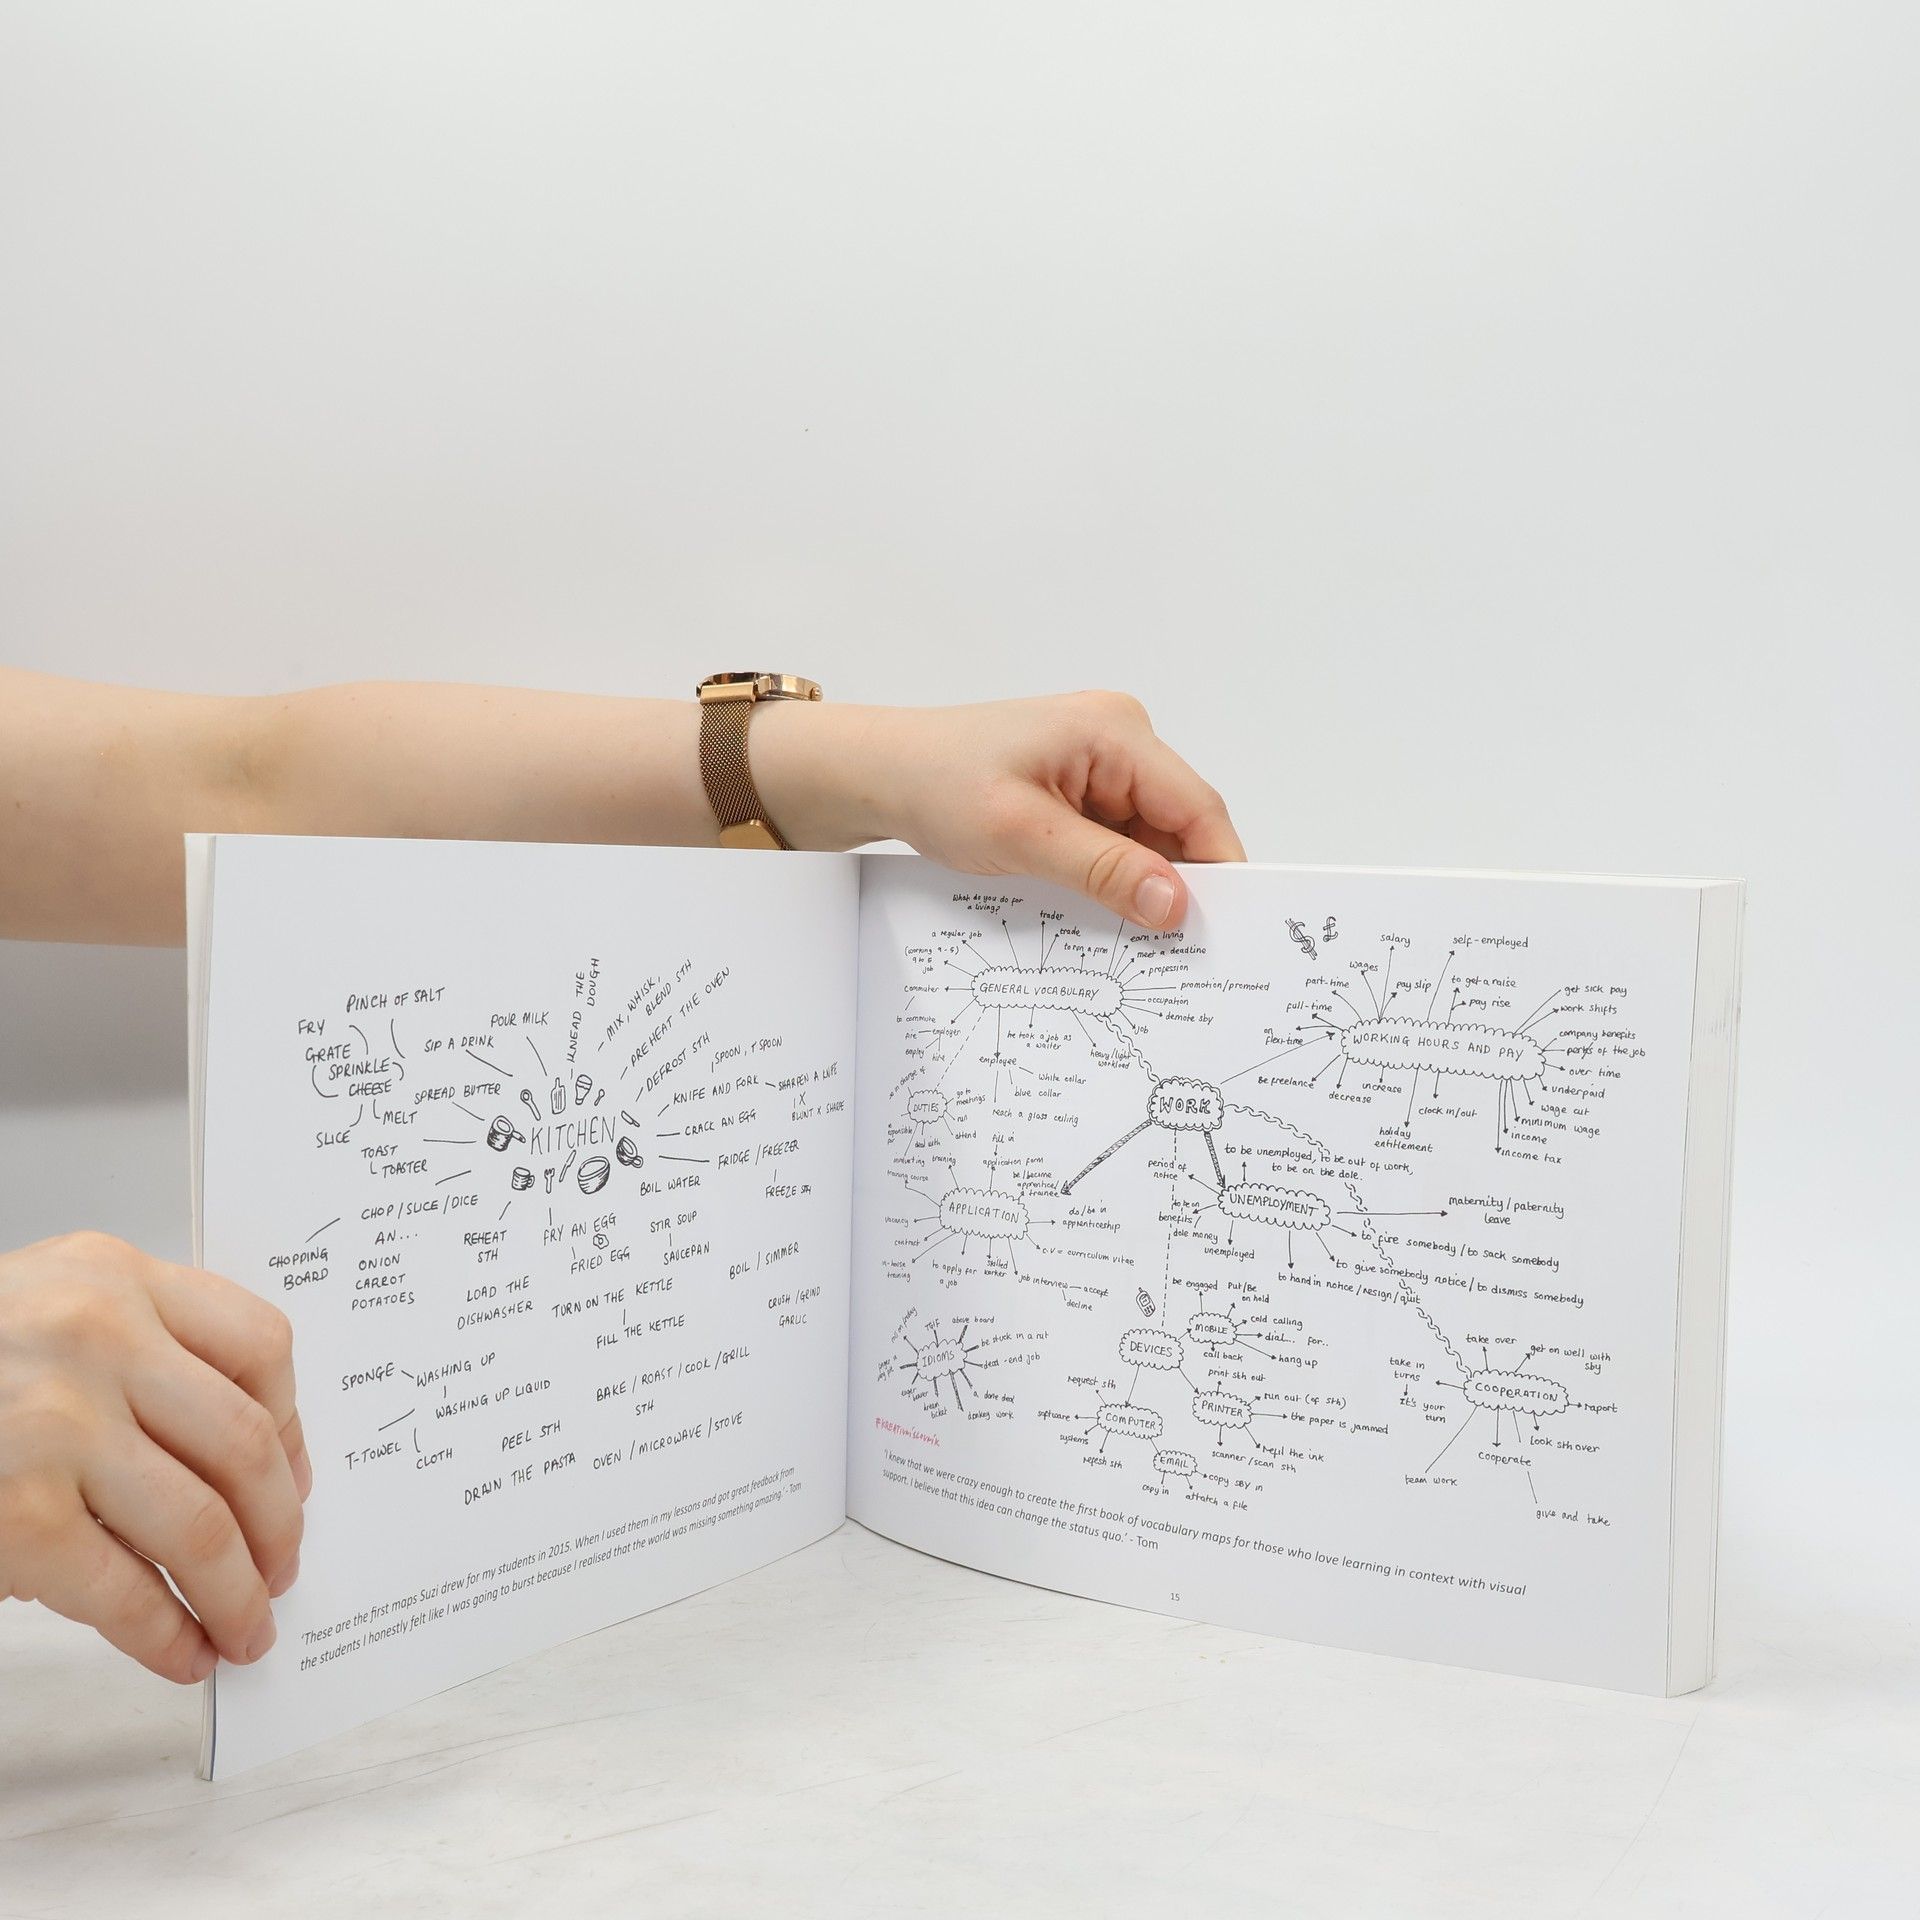 PINCH OF SALT
FRY
GRATE
SPRINKLE
CHEESE
SLICE
MELT
SIP A DRINK
POUR MILK
KNEAD THE
DOUGH
MIX, WHISK,
BLEND STH
PREHEAT THE OVEN
DEFROST STH
SPOON, T SPOON
KNIFE AND FORK
SHARPEN A KNIFE
X
BLUNT X SHARP
CRACK AN EGG
SPREAD BUTTER
KITCHEN
TOAST
TOASTER
FRIDGE / FREEZER
FREEZE STH
BOIL WATER
CHOP / SLICE / DICE
AN...
ONION
CARROT
POTATOES
CHOPPING
BOARD
REHEAT
STH
FRY AN EGG
FRIED EGG
STIR SOUP
SAUCEPAN
LOAD THE
DISHWASHER
TURN ON THE KETTLE
FILL THE KETTLE
BOIL / SIMMER
CRUSH / GRIND
GARLIC
SPONGE
WASHING UP
WASHING UP LIQUID
T-TOWEL
CLOTH
PEEL STH
BAKE / ROAST / COOK / GRILL
STH
DRAIN THE PASTA
OVEN / MICROWAVE / STOVE
'These are the first maps Suzi drew for my students in 2015. When I used them in my lessons and got great feedback from
the students I honestly felt like I was going to burst because I realised that the world was missing something amazing.' - Tom
What do you do for
a living?
trader
trade
to run a firm
earn a living
meet a deadline
profession
promotion/promoted
occupation
demote sby
job
a regular job
(working 9-5)
9 to 5
job
GENERAL VOCABULARY
commuter
to commute
employer
fire
employ
hire
employee
white collar
blue collar
reach a glass ceiling
he took a job as
a waiter
heavy/light
workload
DUTIES
go to
meetings
run
attend
deal with
WORK
salary
self-employed
wages
pay slip
to get a raise
pay rise
part-time
full-time
on
flexi-time
get sick pay
work shifts
company benefits
perks of the job
over time
underpaid
wage cut
minimum wage
income
income tax
WORKING HOURS AND PAY
Be freelance
decrease
increase
clock in/out
holiday
entitlement
fill in
application form
be/become
apprentice/
a trainee
training course
APPLICATION
do/be in
apprenticeship
c.v = curriculum vitae
vacancy
contract
in-house
training
to apply for
a job
skilled
worker
job interview
accept
decline
to be unemployed, to be out of work,
to be on the dole.
period of
notice
UNEMPLOYMENT
maternity / paternity
leave
to be on
benefits/
dole money
unemployed
to fire somebody / to sack somebody
to give somebody notice / to dismiss somebody
to hand in notice / resign / quit
IDIOMS
TGIF
above board
be stuck in a rut
dead-end job
a done deal
donkey work
eager
beaver
DEVICES
MOBILE
be engaged
put/be
on hold
cold calling
dial... for..
hang up
call back
print sth out
PRINTER
run out (of sth)
the paper is jammed
refill the ink
scanner / scan sth
request sth
software
COMPUTER
systems
refesh sth
EMAIL
copy sby in
copy in
attatch a file
take over
get on well with
sby
take in
turns
it's your
turn
COOPERATION
raport
look sth over
cooperate
team work
give and take
#kreativnislovnik
'I knew that we were crazy enough to create the first book of vocabulary maps for those who love learning in context with visual
support. I believe that this idea can change the status quo.' - Tom
15